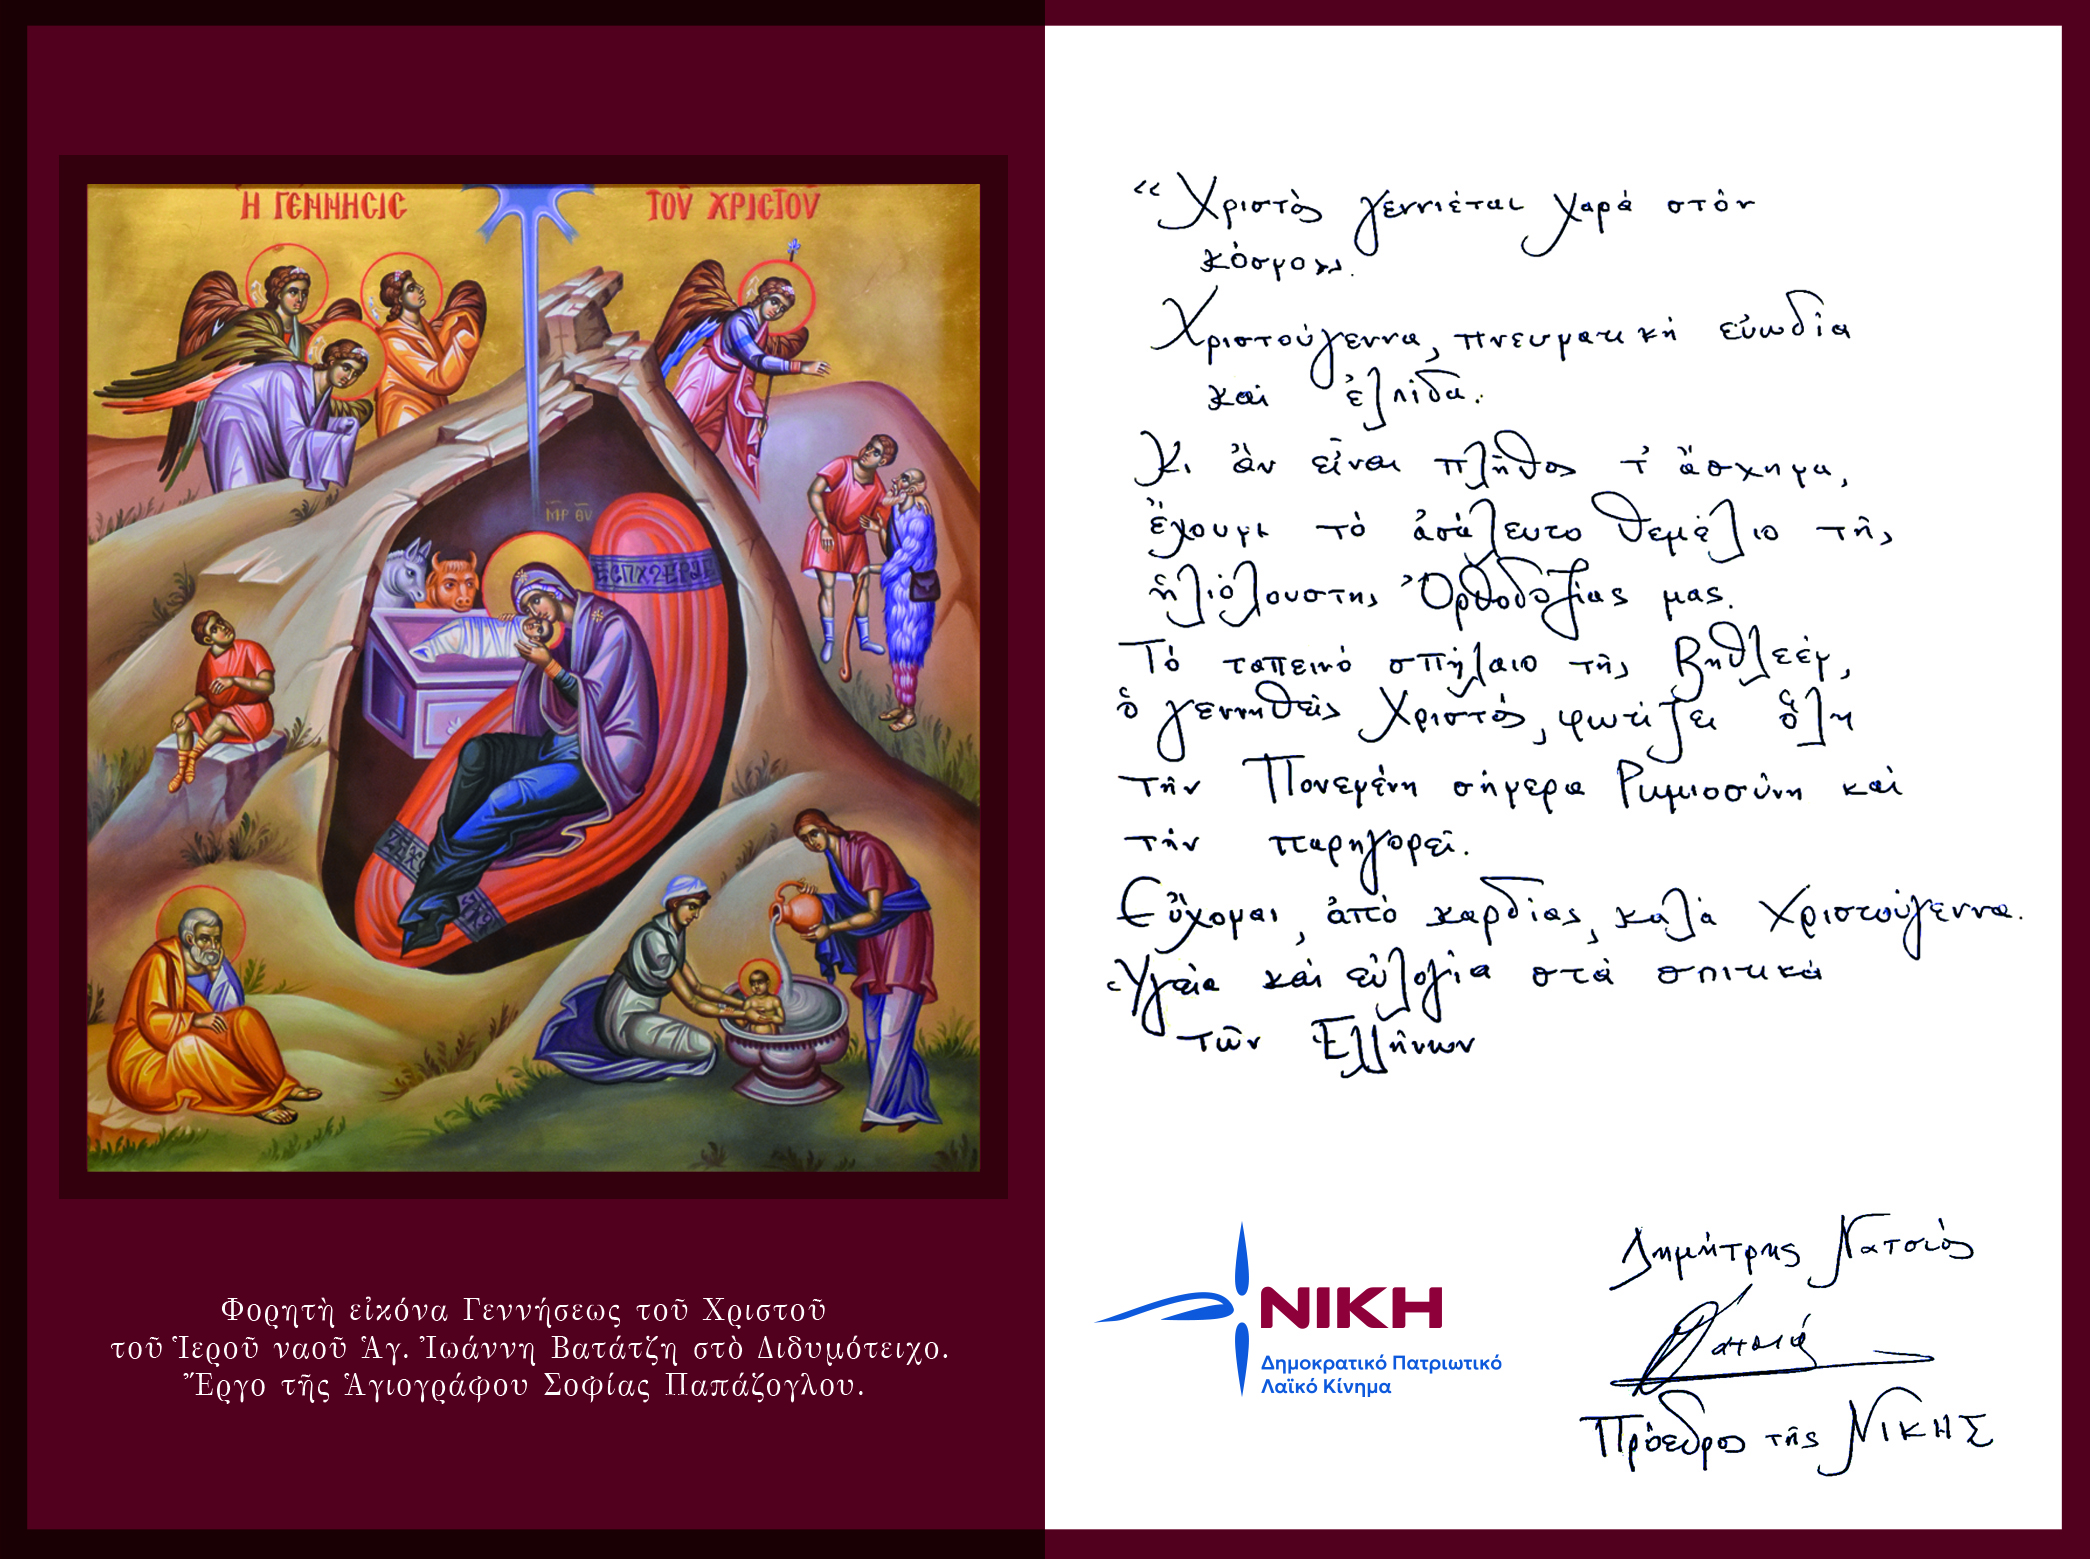 Ἡ ΓΈΝΝΗCΙC ΤΟΥ͂ ΧΡΙCΤΟΥ͂
ΜΡ ΘΥ
Φορητὴ εἰκόνα Γεννήσεως τοῦ Χριστοῦ
τοῦ Ἱεροῦ ναοῦ Ἁγ. Ἰωάννη Βατάτζη στὸ Διδυμότειχο.
Ἔργο τῆς Ἁγιογράφου Σοφίας Παπάζογλου.
“Χριστὸς γεννιέται χαρά στὸν
κόσμο».
Χριστούγεννα, πνευματική εὐωδία
καὶ ἐλπίδα.
Κι ἂν εἶναι πλῆθος τ' ἄσχημα,
ἔχουμε τὸ ἀσάλευτο θεμέλιο τῆς
ἡλιόλουστης Ὀρθοδοξίας μας.
Τὸ ταπεινὸ σπήλαιο τῆς Βηθλεέμ,
ὁ γεννηθεὶς Χριστός, φωτίζει ὅλη
τὴν Πονεμένη σήμερα Ρωμιοσύνη καὶ
τὴν παρηγορεῖ.
Εὔχομαι, ἀπὸ καρδίας, καλὰ Χριστούγεννα.
Ὑγεία καὶ εὐλογία στὰ σπιτικά
τῶν Ἑλλήνων
Δημήτρης Νατσιὸς
Πρόεδρος τῆς ΝΙΚΗΣ
ΝΙΚΗ
Δημοκρατικό Πατριωτικό
Λαϊκό Κίνημα